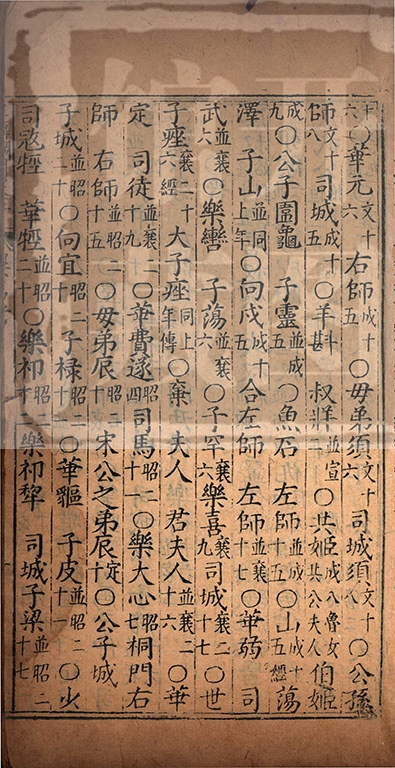 十六〇華元文十六 右師成十五〇毋弟須文十八 司城須文十八〇公孫
師文十八 司城成十五〇羊斟 叔牂並宣二〇共姬成八魯女共公夫人 伯姬
成九〇公子圍龜 子靈並成五〇魚石 左師並成十五〇山成十五經 蕩
澤 子山並同上年〇向戍成十五 合左師 左師並襄十七〇華弱 司
武並襄六〇樂轡 子蕩並襄六〇子罕襄六 樂喜襄九 司城襄十七〇世
子痤襄二十六經 大子痤同上年傳〇棄 夫人 君夫人並襄二十六〇華
定 司徒並襄二十九〇華費遂昭四 司馬昭二十一〇樂大心昭七 桐門右
師 右師並昭二十五〇毋弟辰昭二十 宋公之弟辰定十〇公子城
子城並昭二十〇向宜昭二十 子祿昭二十一〇華貙 子皮並昭二十一〇少
司寇牼 華牼並昭二十〇樂祁昭二十二 樂祁犂 司城子梁並昭二十七